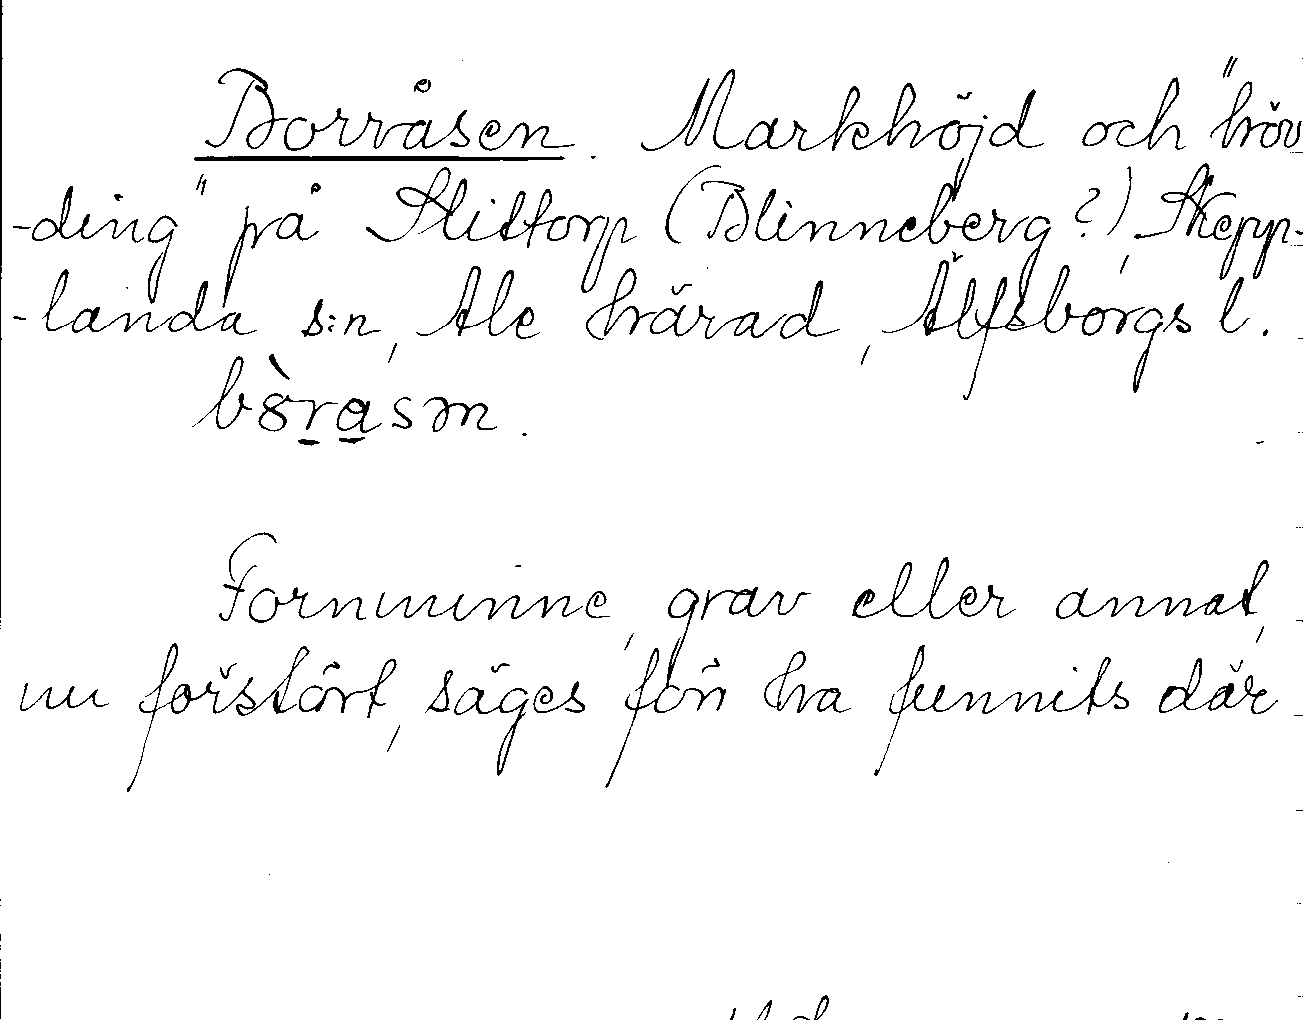 Borråsen. Markhöjd och "höv
-ding" på Slittorp (Blinneberg?), Skepp-
-landa s:n, Ale härad, Älfsborgs l.
bòrasm.
Fornminne, grav eller annat,
nu förstört, säges förr ha funnits där